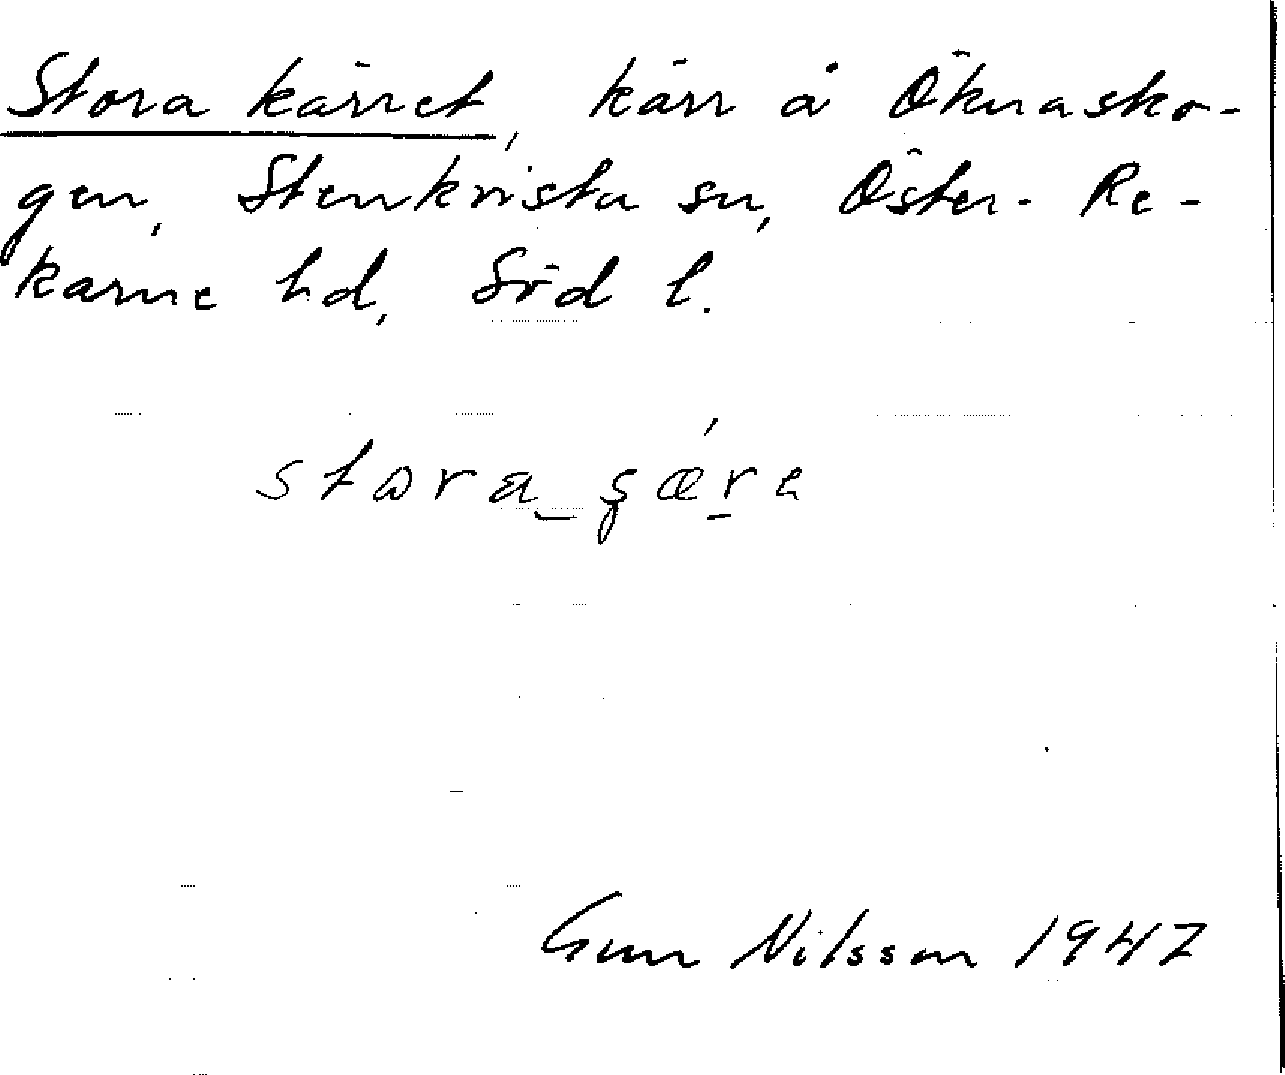 Stora kärret, kärr å Öknasko-
gen, Stenkvista sn, Öster-Re-
karne hd, Söd l.
Gun Nilsson 1947